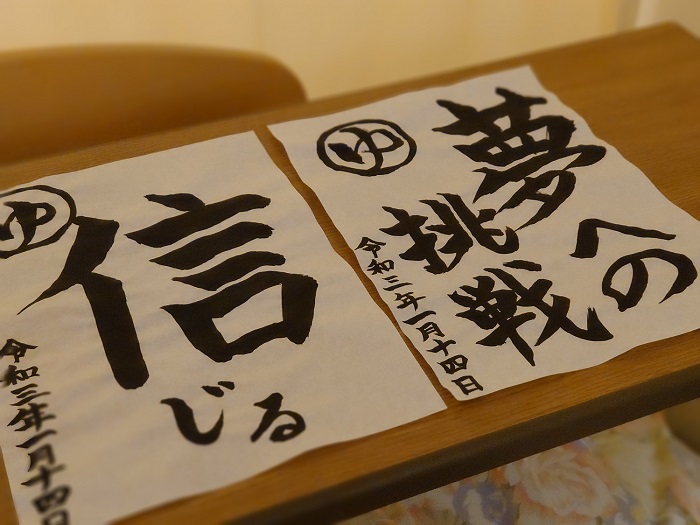 夢への
挑戦
令和三年一月十四日
ゆ
信じる
令和三年一月十四日
ゆ